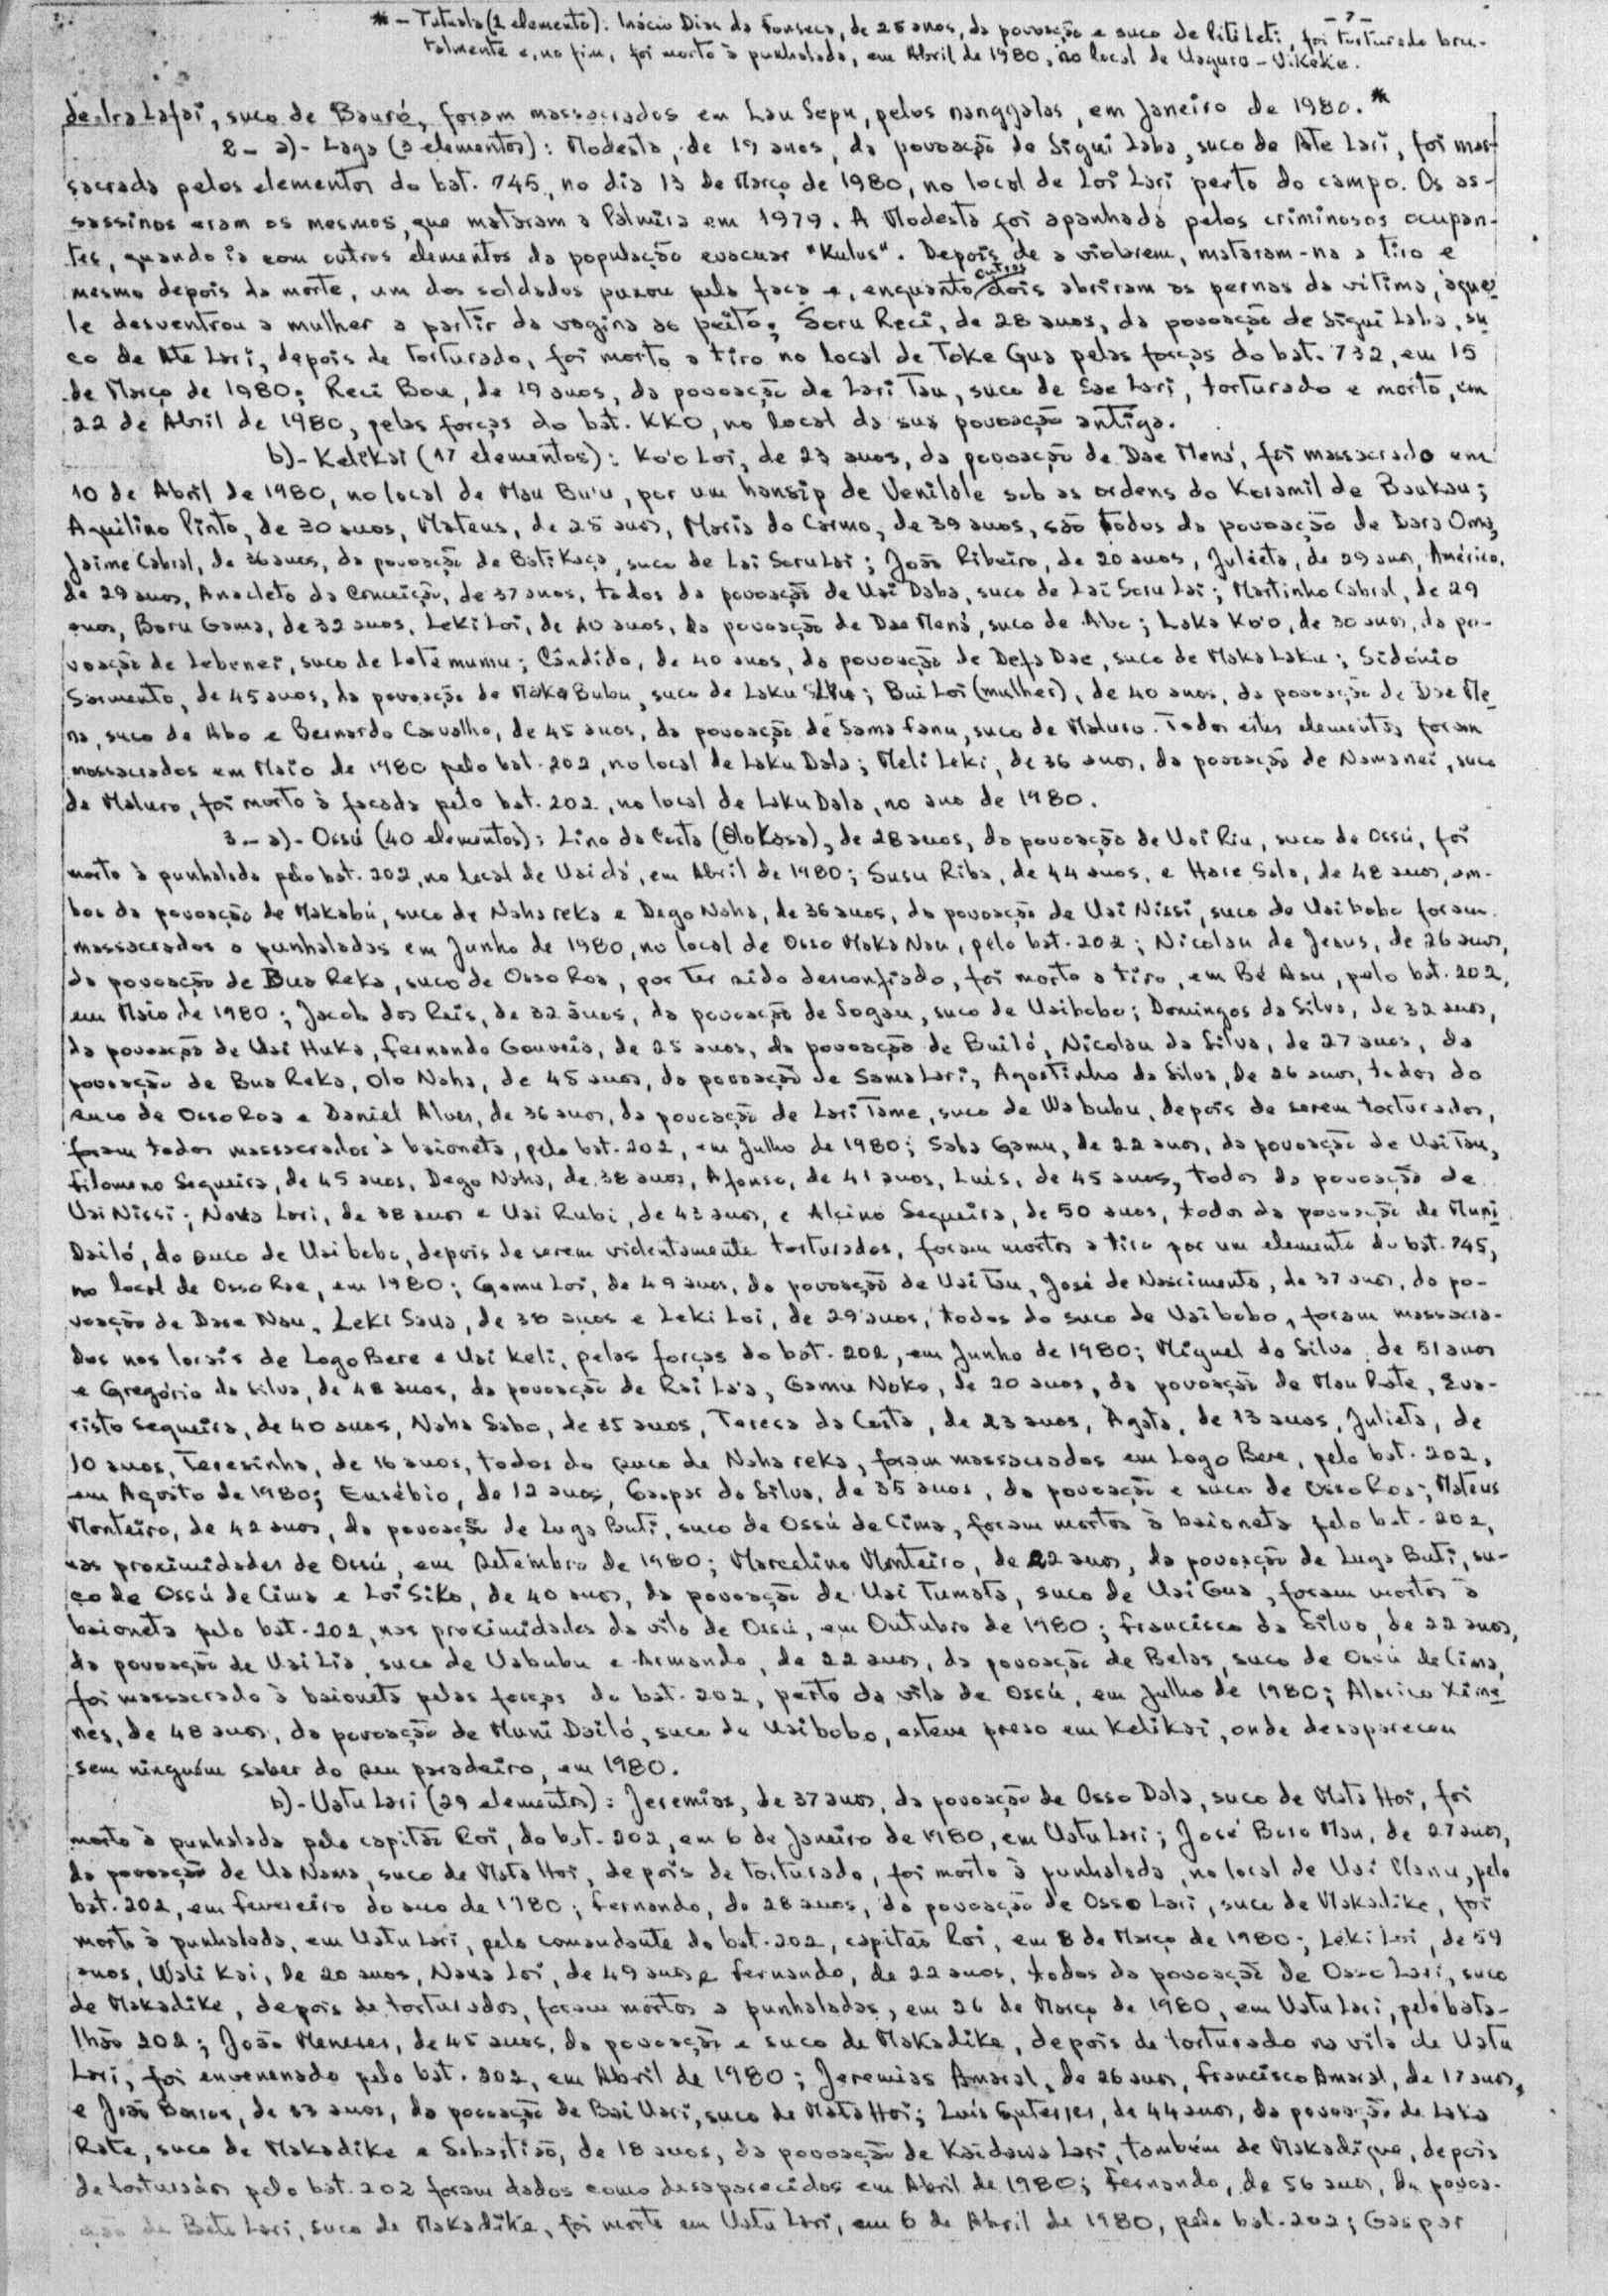 - 7 -
* - Tutuala (1 elemento): Inácio Dias da Fonseca, de 25 anos, da povoação e suco de Pitileti, foi torturado bru-
talmente e, no fim, foi morto à punhalada, em Abril de 1980, no local de Uaguro - Vikeke.
de Ira Lafai, suco de Bauró, foram massacrados em Lau Sepu, pelos nanggalas, em Janeiro de 1980. *
2 - a) - Laga (3 elementos): Modesta, de 19 anos, da povoação de Sigui Laba, suco de Ate Lari, foi mas-
sacrada pelos elementos do bat. 745, no dia 13 de Março de 1980, no local de Loi Lari perto do campo. Os as-
sassinos eram os mesmos, que mataram a Palmira em 1979. A Modesta foi apanhada pelos criminosos ocupan-
tes, quando ia com outros elementos da população evacuar "Kulus". Depois de a violarem, mataram-na a tiro e
mesmo depois da morte, um dos soldados puxou pela faca e, enquanto outros dois abriram as pernas da vítima, aque-
le desventrou a mulher a partir da vagina ao peito; Soru Reci, de 28 anos, da povoação de Sigui Laba, su
co de Ate Lari, depois de torturado, foi morto a tiro no local de Toke Gua pelas forças do bat. 732, em 15
de Março de 1980; Reci Bou, de 19 anos, da povoação de Lari Tau, suco de Sae Lari, torturado e morto, em
22 de Abril de 1980, pelas forças do bat. KKO, no local da sua povoação antiga.
b) - Kelikai (17 elementos): Ko'o Loi, de 23 anos, da povoação de Dae Mená, foi massacrado em
10 de Abril de 1980, no local de Mau Bu'u, por um hansip de Venilale sob as ordens do Koramil de Baukau;
Aquilino Pinto, de 30 anos, Mateus, de 25 anos, Maria do Carmo, de 39 anos, são todos da povoação de Dara Oma,
Jaime Cabral, de 36 anos, da povoação de Bati Kaça, suco de Lai Soru Lai; João Ribeiro, de 20 anos, Julieta, de 29 anos, Américo,
de 29 anos, Anacleto da Conceição, de 37 anos, todos da povoação de Uai Daba, suco de Lai Soru Lai; Martinho Cabral, de 29
anos, Boru Gama, de 32 anos, Leki Loi, de 40 anos, da povoação de Dae Mená, suco de Abo; Laka Ko'o, de 30 anos, da po-
voação de Lebenei, suco de Letemumu; Cândido, de 40 anos, da povoação de Defa Dae, suco de Maka Laku; Sidónio
Sarmento, de 45 anos, da povoação de Maka Bubu, suco de Laku; Bui Loi (mulher), de 40 anos, da povoação de Dae Me
na, suco de Abo e Bernardo Carvalho, de 45 anos, da povoação de Sama Fanu, suco de Maluro. Todos estes elementos foram
massacrados em Maio de 1980 pelo bat. 202, no local de Laku Dala; Meli Leki, de 36 anos, da povoação de Namanei, suco
de Maluro, foi morto à facada pelo bat. 202, no local de Laku Dala, no ano de 1980.
3 - a) - Ossú (40 elementos): Lino da Costa (Olo Kasa), de 28 anos, da povoação de Uai Riu, suco de Ossú, foi
morto à punhalada pelo bat. 202, no local de Uaidá, em Abril de 1980; Susu Riba, de 44 anos, e Hare Sala, de 48 anos, am-
bos da povoação de Makabú, suco de Nahareka e Dego Naha, de 36 anos, da povoação de Uai Nissi, suco de Uaibobo foram
massacrados a punhaladas em Junho de 1980, no local de Osso Maka Nau, pelo bat. 202; Nicolau de Jesus, de 26 anos,
da povoação de Bua Reka, suco de Osso Roa, por ter sido desconfiado, foi morto a tiro, em Bé Asu, pelo bat. 202,
em Maio de 1980; Jacob dos Reis, de 32 anos, da povoação de Sogau, suco de Uaibobo; Domingos da Silva, de 32 anos,
da povoação de Uai Huka, Fernando Gouveia, de 25 anos, da povoação de Builó, Nicolau da Silva, de 27 anos, da
povoação de Bua Reka, Olo Naha, de 45 anos, da povoação de Sama Lari, Agostinho da Silva, de 26 anos, todos do
suco de Osso Roa e Daniel Alves, de 36 anos, da povoação de Lari Tame, suco de Uabubu, depois de serem torturados,
foram todos massacrados à baioneta, pelo bat. 202, em Julho de 1980; Saba Gamu, de 22 anos, da povoação de Uai Tau,
Filomeno Sequeira, de 45 anos, Dego Naha, de 38 anos, Afonso, de 41 anos, Luís, de 45 anos, todos da povoação de
Uai Nissi; Naua Lori, de 38 anos e Uai Rubi, de 43 anos, e Alcino Sequeira, de 50 anos, todos da povoação de Muni
Dailó, do suco de Uaibobo, depois de serem violentamente torturados, foram mortos a tiro por um elemento do bat. 745,
no local de Osso Rae, em 1980; Gamu Loi, de 49 anos, da povoação de Uai Tau, José de Nascimento, de 37 anos, da po-
voação de Dara Nau, Leki Saua, de 38 anos e Leki Loi, de 29 anos, todos do suco de Uaibobo, foram massacra-
dos nos locais de Logo Bere e Uai Keli, pelas forças do bat. 202, em Junho de 1980; Miguel da Silva, de 51 anos
e Gregório da Silva, de 48 anos, da povoação de Rai La'a, Gamu Noko, de 20 anos, da povoação de Mau Rate, Eva-
risto Sequeira, de 40 anos, Naha Sabo, de 35 anos, Teresa da Costa, de 23 anos, Ágata, de 13 anos, Julieta, de
10 anos, Teresinha, de 16 anos, todos do suco de Nahareka, foram massacrados em Logo Bere, pelo bat. 202,
em Agosto de 1980; Eusébio, de 12 anos, Gaspar da Silva, de 35 anos, da povoação e suco de Osso Roa; Mateus
Monteiro, de 42 anos, da povoação de Luga Buti, suco de Ossú de Cima, foram mortos à baioneta pelo bat. 202,
nas proximidades de Ossú, em Setembro de 1980; Marcelino Monteiro, de 22 anos, da povoação de Luga Buti, su-
co de Ossú de Cima e Loi Siko, de 40 anos, da povoação de Uai Tumata, suco de Uai Gua, foram mortos à
baioneta pelo bat. 202, nas proximidades da vila de Ossú, em Outubro de 1980; Francisco da Silva, de 22 anos,
da povoação de Uai Lia, suco de Uabubu e Armando, de 22 anos, da povoação de Belas, suco de Ossú de Cima,
foi massacrado à baioneta pelas forças do bat. 202, perto da vila de Ossú, em Julho de 1980; Alarico Xime
nes, de 48 anos, da povoação de Muni Dailó, suco de Uaibobo, esteve preso em Kelikai, onde desapareceu
sem ninguém saber do seu paradeiro, em 1980.
b) - Uatu Lari (29 elementos): Jeremias, de 37 anos, da povoação de Osso Dala, suco de Mata Hoi, foi
morto à punhalada pelo capitão Roi, do bat. 202, em 6 de Janeiro de 1980, em Uatu Lari; José Boro Mau, de 27 anos,
da povoação de Ua Nama, suco de Mata Hoi, depois de torturado, foi morto à punhalada, no local de Uai Manu, pelo
bat. 202, em Fevereiro do ano de 1980; Fernando, de 28 anos, da povoação de Osso Lari, suco de Makadike, foi
morto à punhalada, em Uatu Lari, pelo comandante do bat. 202, capitão Roi, em 8 de Março de 1980; Leki Loi, de 59
anos, Wali Kai, de 20 anos, Naua Loi, de 49 anos e Fernando, de 22 anos, todos da povoação de Osso Lari, suco
de Makadike, depois de torturados, foram mortos a punhaladas, em 26 de Março de 1980, em Uatu Lari, pelo bata-
lhão 202; João Meneses, de 45 anos, da povoação e suco de Makadike, depois de torturado na vila de Uatu
Lari, foi envenenado pelo bat. 202, em Abril de 1980; Jeremias Amaral, de 26 anos, Francisco Amaral, de 17 anos,
e João Barros, de 33 anos, da povoação de Bai Uari, suco de Mata Hoi; Luís Guterres, de 44 anos, da povoação de Laka
Rate, suco de Makadike e Sabastião, de 18 anos, da povoação de Kaidawa Lari, também de Makadique, depois
de torturados pelo bat. 202 foram dados como desaparecidos em Abril de 1980; Fernando, de 56 anos, da povoa-
ção de Bete Lari, suco de Makadike, foi morto em Uatu Lari, em 6 de Abril de 1980, pelo bat. 202; Gaspar